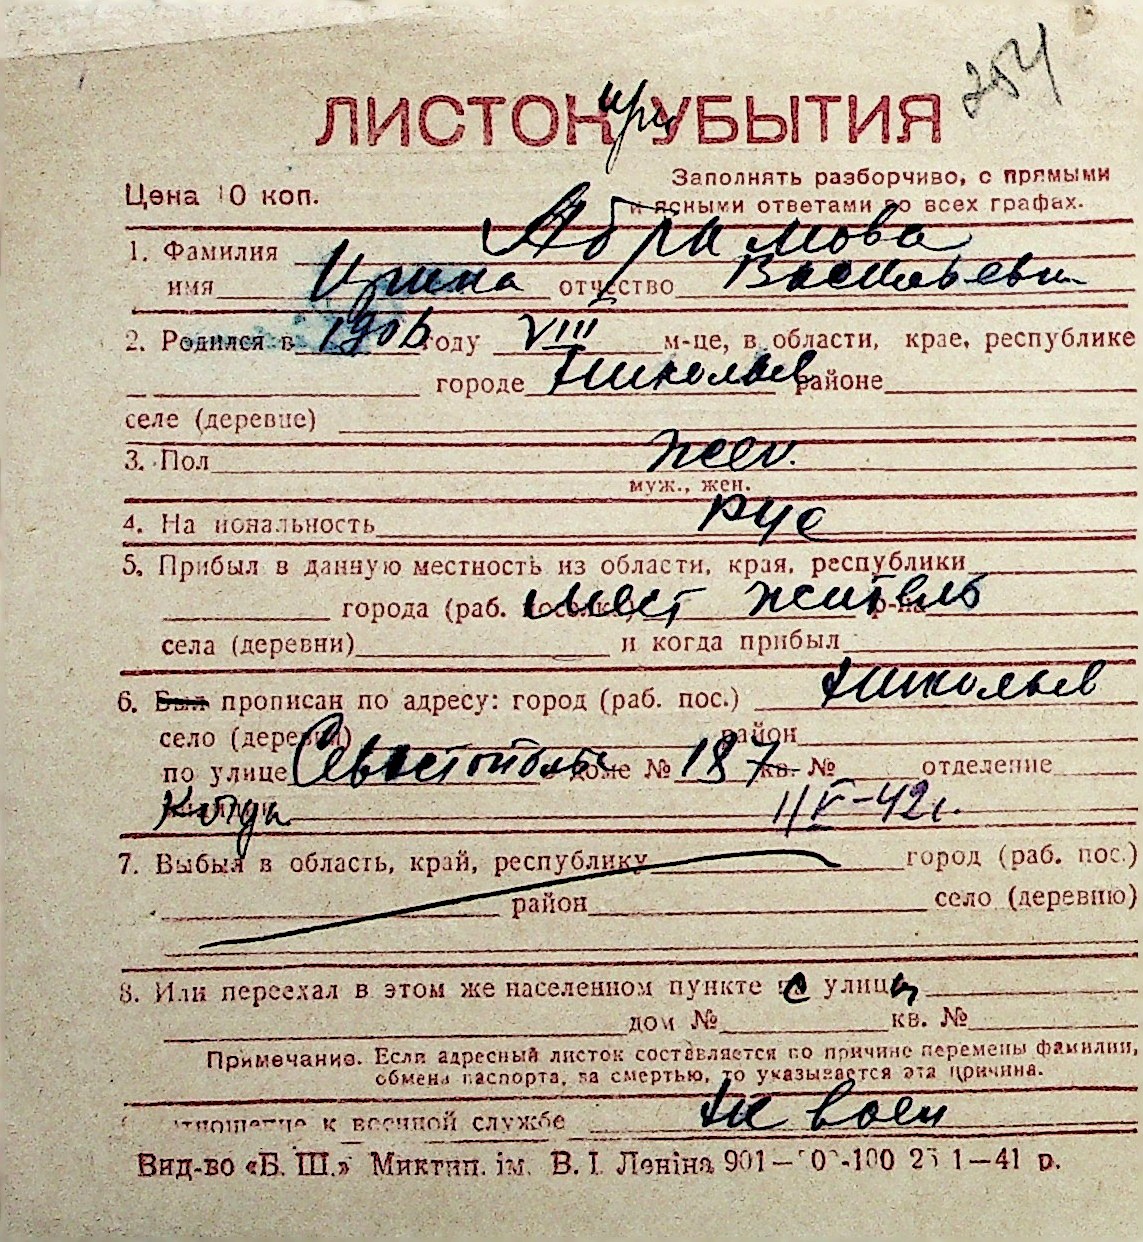 254
ЛИСТОК при УБЫТИЯ
Цена 10 коп.
Заполнять разборчиво, с прямыми
и ясными ответами во всех графах.
1. Фамилия Абрамова
имя Ирина отчество Васильевн
2. Родился в 1906 году VIII м-це, в области, крае, республике
городе Николаев районе
селе (деревне)
3. Пол жен.
муж., жен.
4. На иональность рус
5. Прибыл в данную местность из области, края, республики
города (раб. поселка) мест житель р-на
села (деревни) и когда прибыл
6. Был прописан по адресу: город (раб. пос.) Николаев
село (деревни) район
по улице Севастополь доме № 187 кв. № отделение
Когда 11 V-42 г.
7. Выбыл в область, край, республику город (раб. пос.)
район село (деревню)
8. Или переехал в этом же населенном пункте с улицы
дом № кв. №
Примечание. Если адресный листок составляется по причине перемены фамилии,
обмена паспорта, за смертью, то указывается эта причина.
тношение к военной службе не воен
Вид-во «Б. Ш.» Миктип. ім. В. І. Леніна 901— 1—41 р.